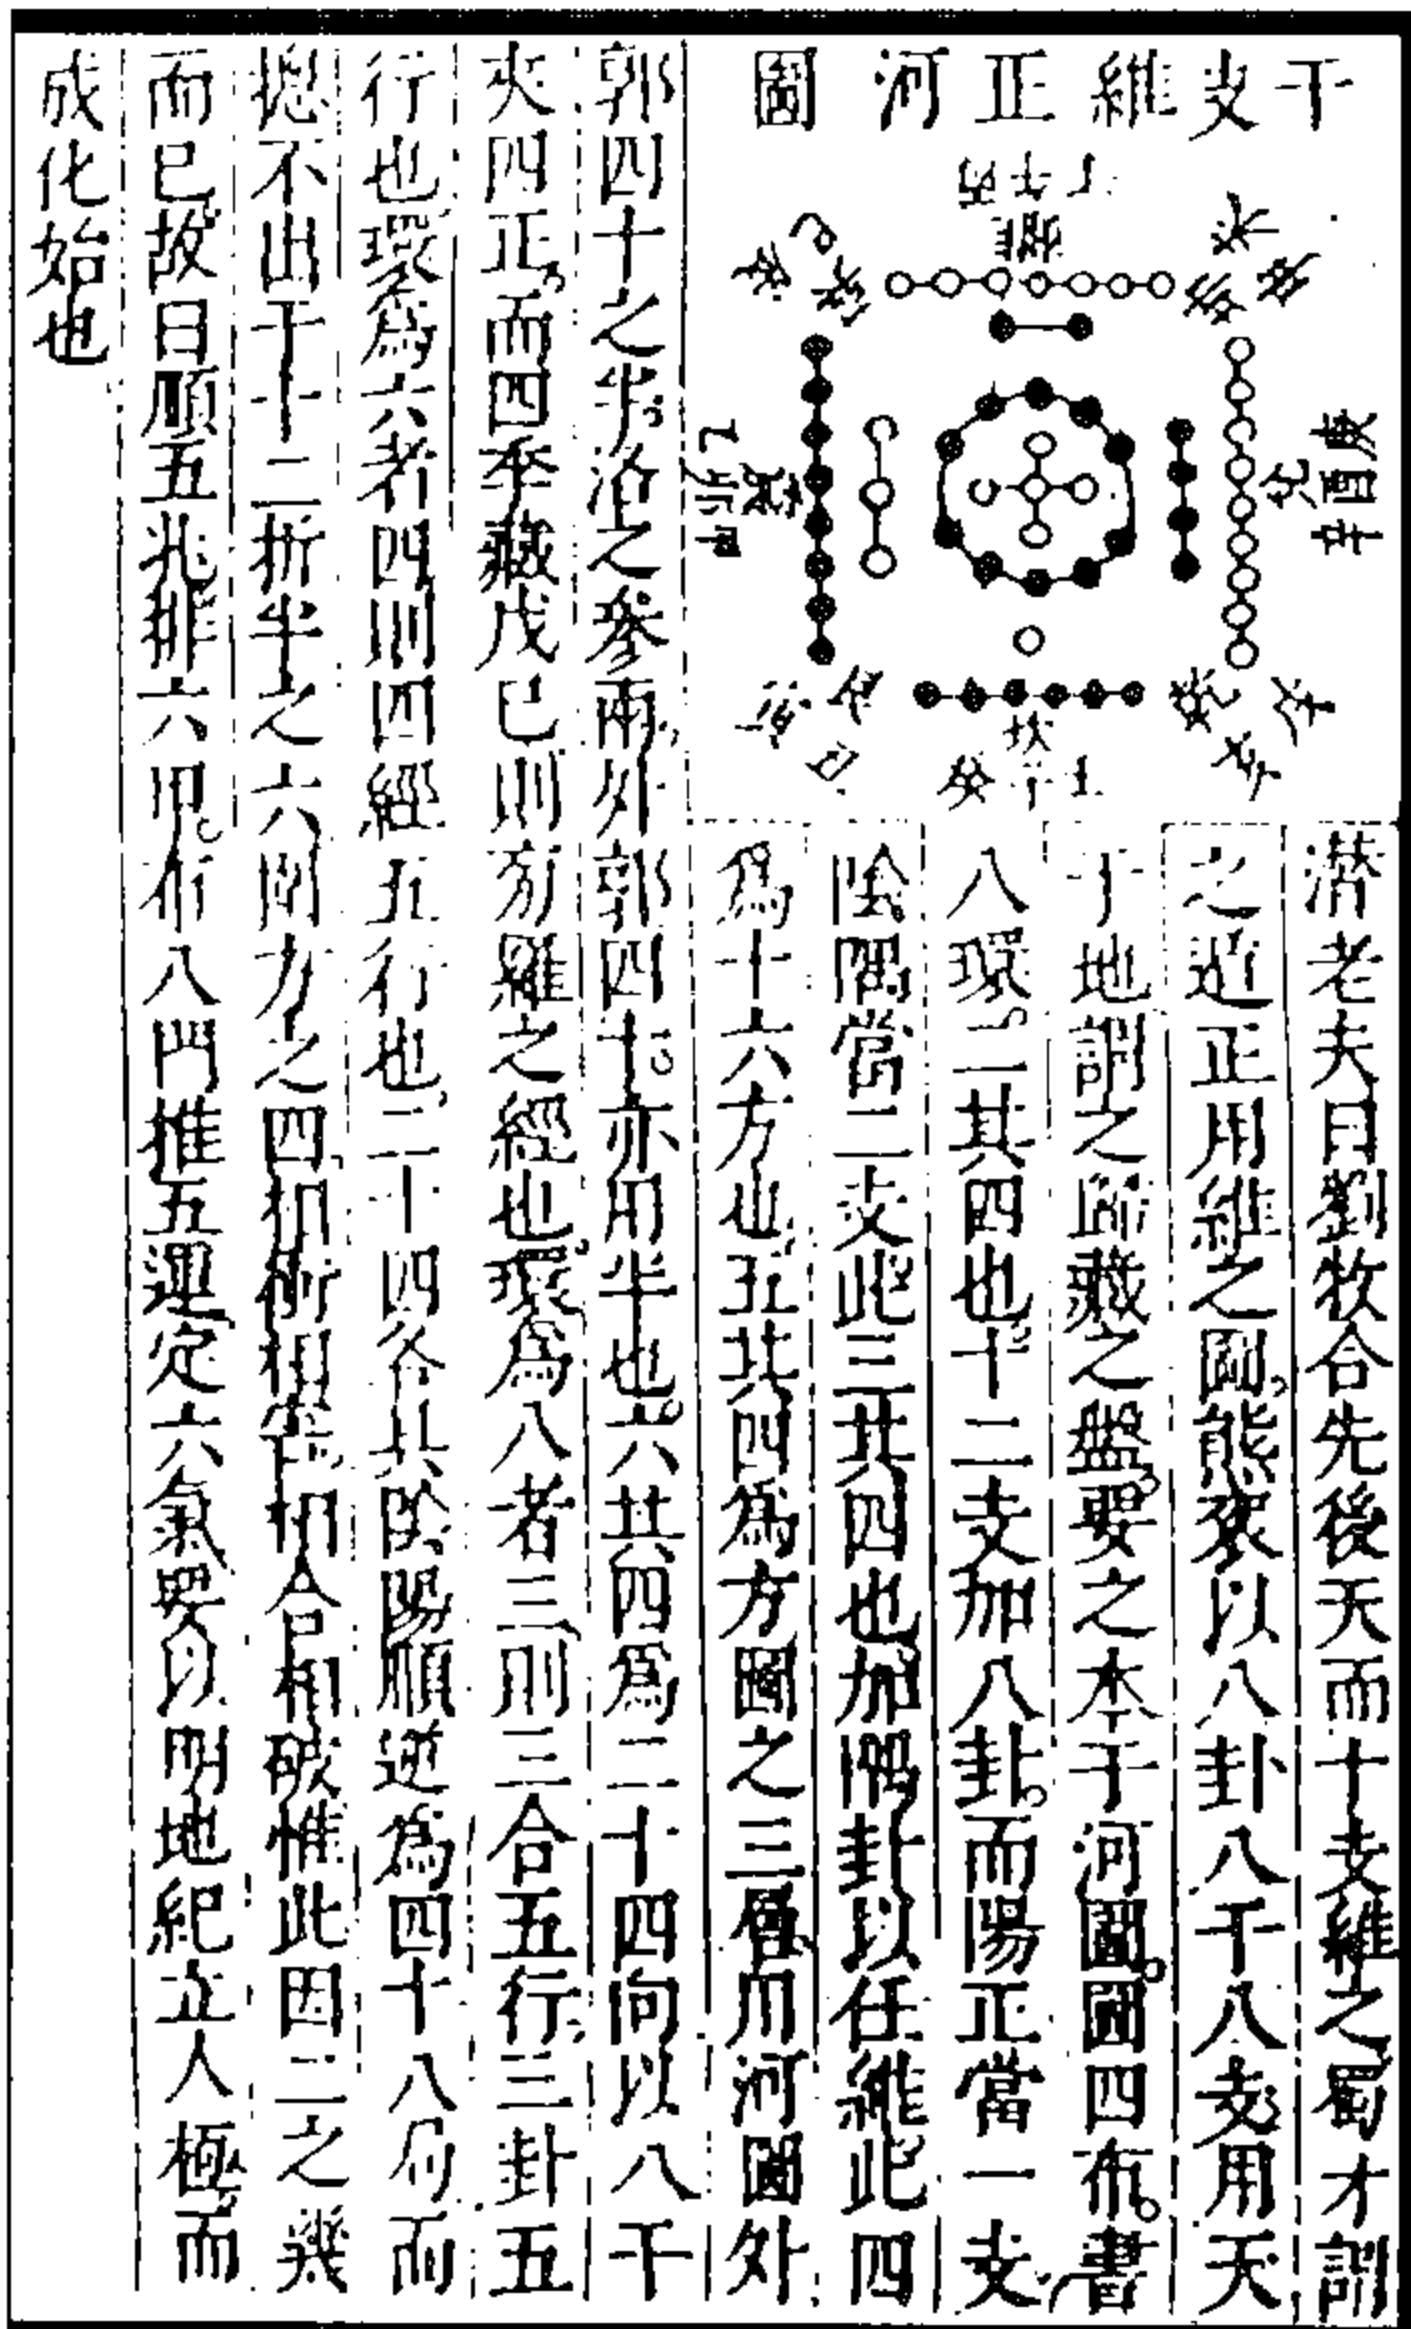 干支維正河圖
丁午丙
離
未
坤
申
庚酉辛
兌
戌
乾
亥
壬子癸
坎
丑
艮
寅
甲卯乙
震
辰
巽
巳
潛老夫曰劉牧合先後天而十支維之蜀才謂
之遁正用維之圖熊來以八卦八千八支用天
于地謂之歸藏之盤要之本于河圖圖四布書
八環二其四也十二支加八卦而陽正當一支
陰隅當二支此三其四也加隅卦以任維此四
爲十六方也五其四爲方圖之三層用河圖外
郭四十之半洛之參兩外郭四十亦用半也六其四爲二十四向以八干
夾四正而四季藏戊巳則旁羅之經也環爲八者三則三合五行三卦五
行也環爲六者四則四經五行也二十四各具陰陽順逆爲四十八局而
揔不出于十二折半之六岡方之四相衝相害相合相破惟此因二之幾
而已故曰順五兆排六甲布八門推五運定六氣要以明地紀立人極而
成化始也